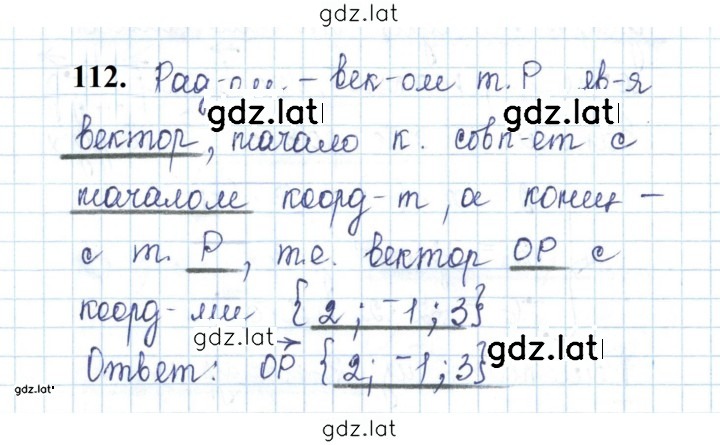 gdz.lat
112. Рад-р... – век-ом т. Р яв-я
gdz.lat gdz.lat
вектор, начало к. совп-ет с
началом коорд-т, а конец –
с т. Р, т.е. вектор ОР с
коорд-ми {2; -1; 3}
gdz.lat gdz.lat
Ответ: ОР {2; -1; 3}
gdz.lat
gdz.lat